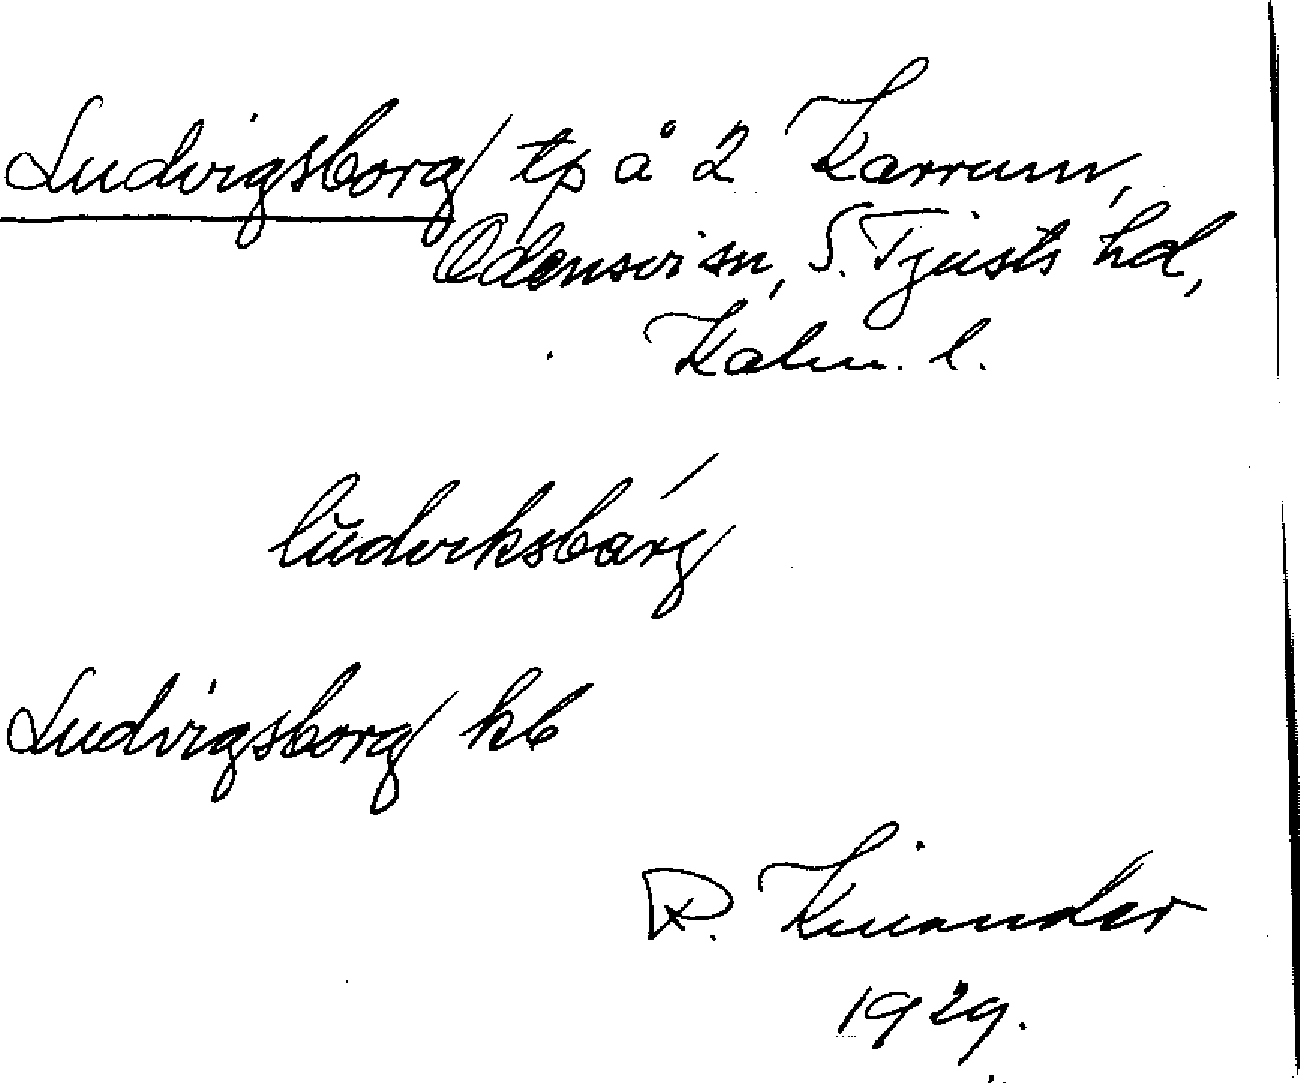 Ludvigsborg tp å 2 Karrum,
Odensvi sn, S. Tjusts hd,
Kalm. l.
lŭdvıksbárg
Ludvigsborg kb
R. Kinander
1929.